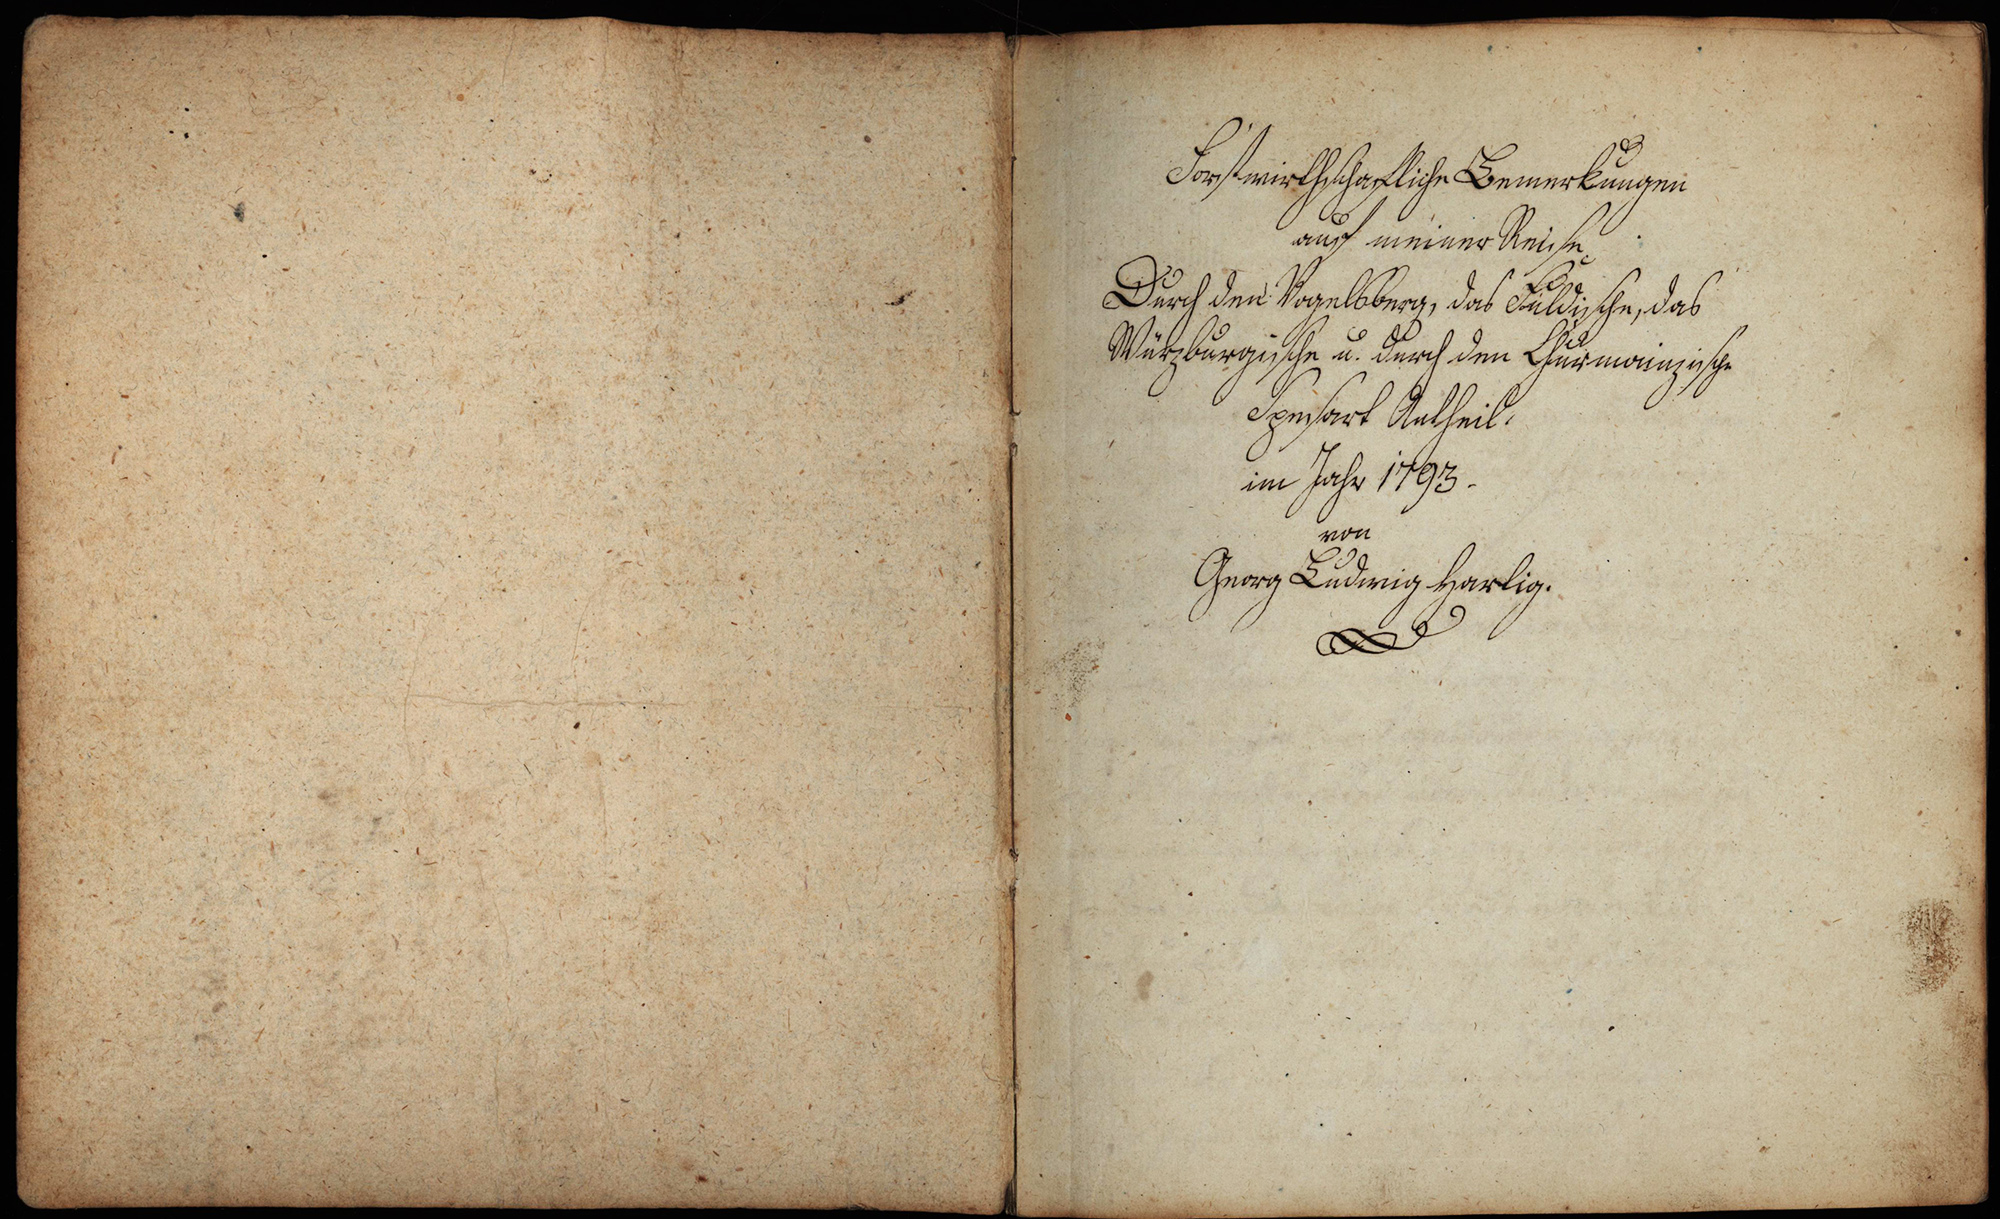 Forstwirthschaftliche Bemerkungen
auf meiner Reise
Durch den Vogelsberg, das Fuldische, das
Würzburgische u. durch den Churmainzische
Spessart Antheil.
im Jahr 1793.
von
Georg Ludwig Hartig.